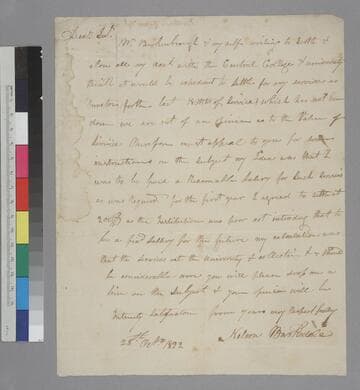 Dear Sir.
Mr Brockenbrough & my self wishing to Settle &
close all my acct with the Central College & university
think it would be expedient to settle for my services as
proctor, for the last of Service) which has not been
done we are not of one opinion as to the Value of
Service therefore must appeal to you for
instructions on the subject my Idea was that I
was to be paid a reasonable Salary for Such Services
as was required for the first year I agreed to
200$ as the Institution was poor not intending that to
be a fixd Sallery for the future my calculations was
that the services at the University &
be considerable more you will please drop me a
line on the Subject & your opinion will be
Satisfaction from yours very respectfully
Nelson Barksdale
28th 1822